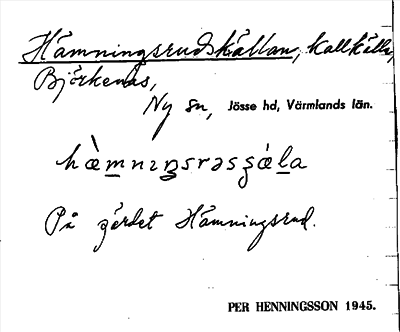 Hämningsrudskällan, kallkälla,
Björkenäs,
Ny sn, Jösse hd, Värmlands län.
hæ̀mnıŋsrəsgálа
På gärdet Hämningsrud.
PER HENNINGSSON 1945.